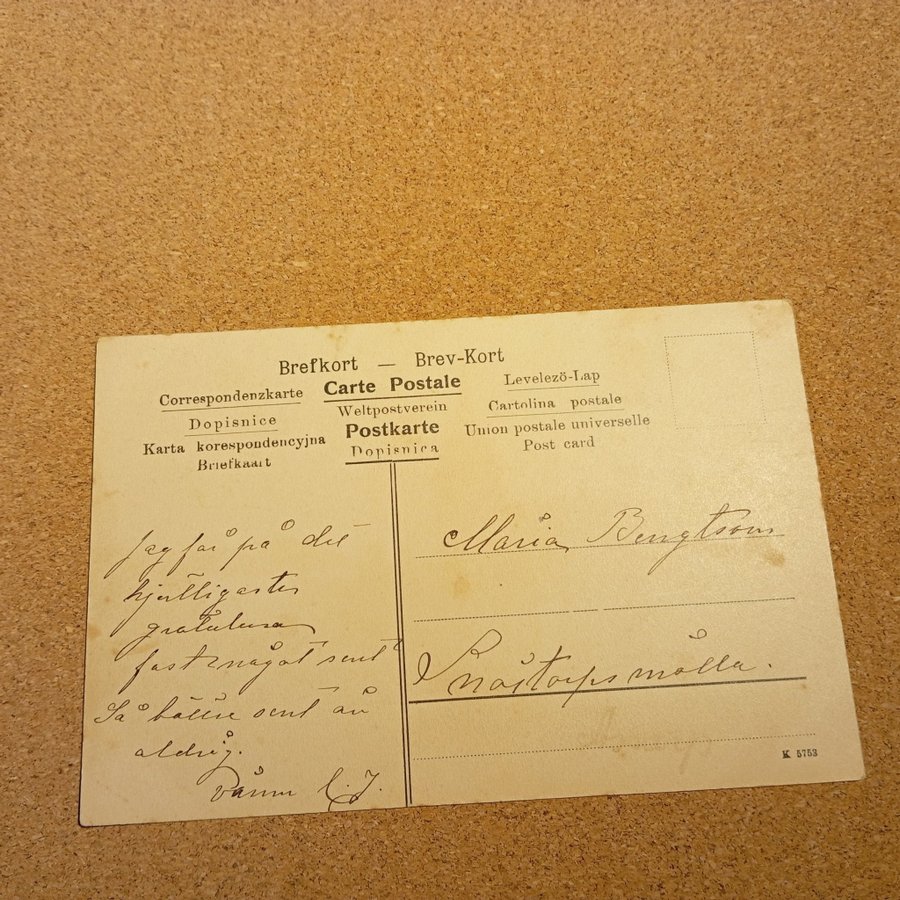 Brefkort — Brev-Kort
Correspondenzkarte
Carte Postale
Levelezö-Lap
Dopisnice
Weltpostverein
Cartolina postale
Karta korespondencyjna
Postkarte
Union postale universelle
Briefkaart
Dopisnica
Post card
Jag får på det
hjertligaste
gratulera
fast något sent
Så bättre sent än
aldrig.
E. J.
Maria Bengtson
Snöstorpsmölla.
K 5753